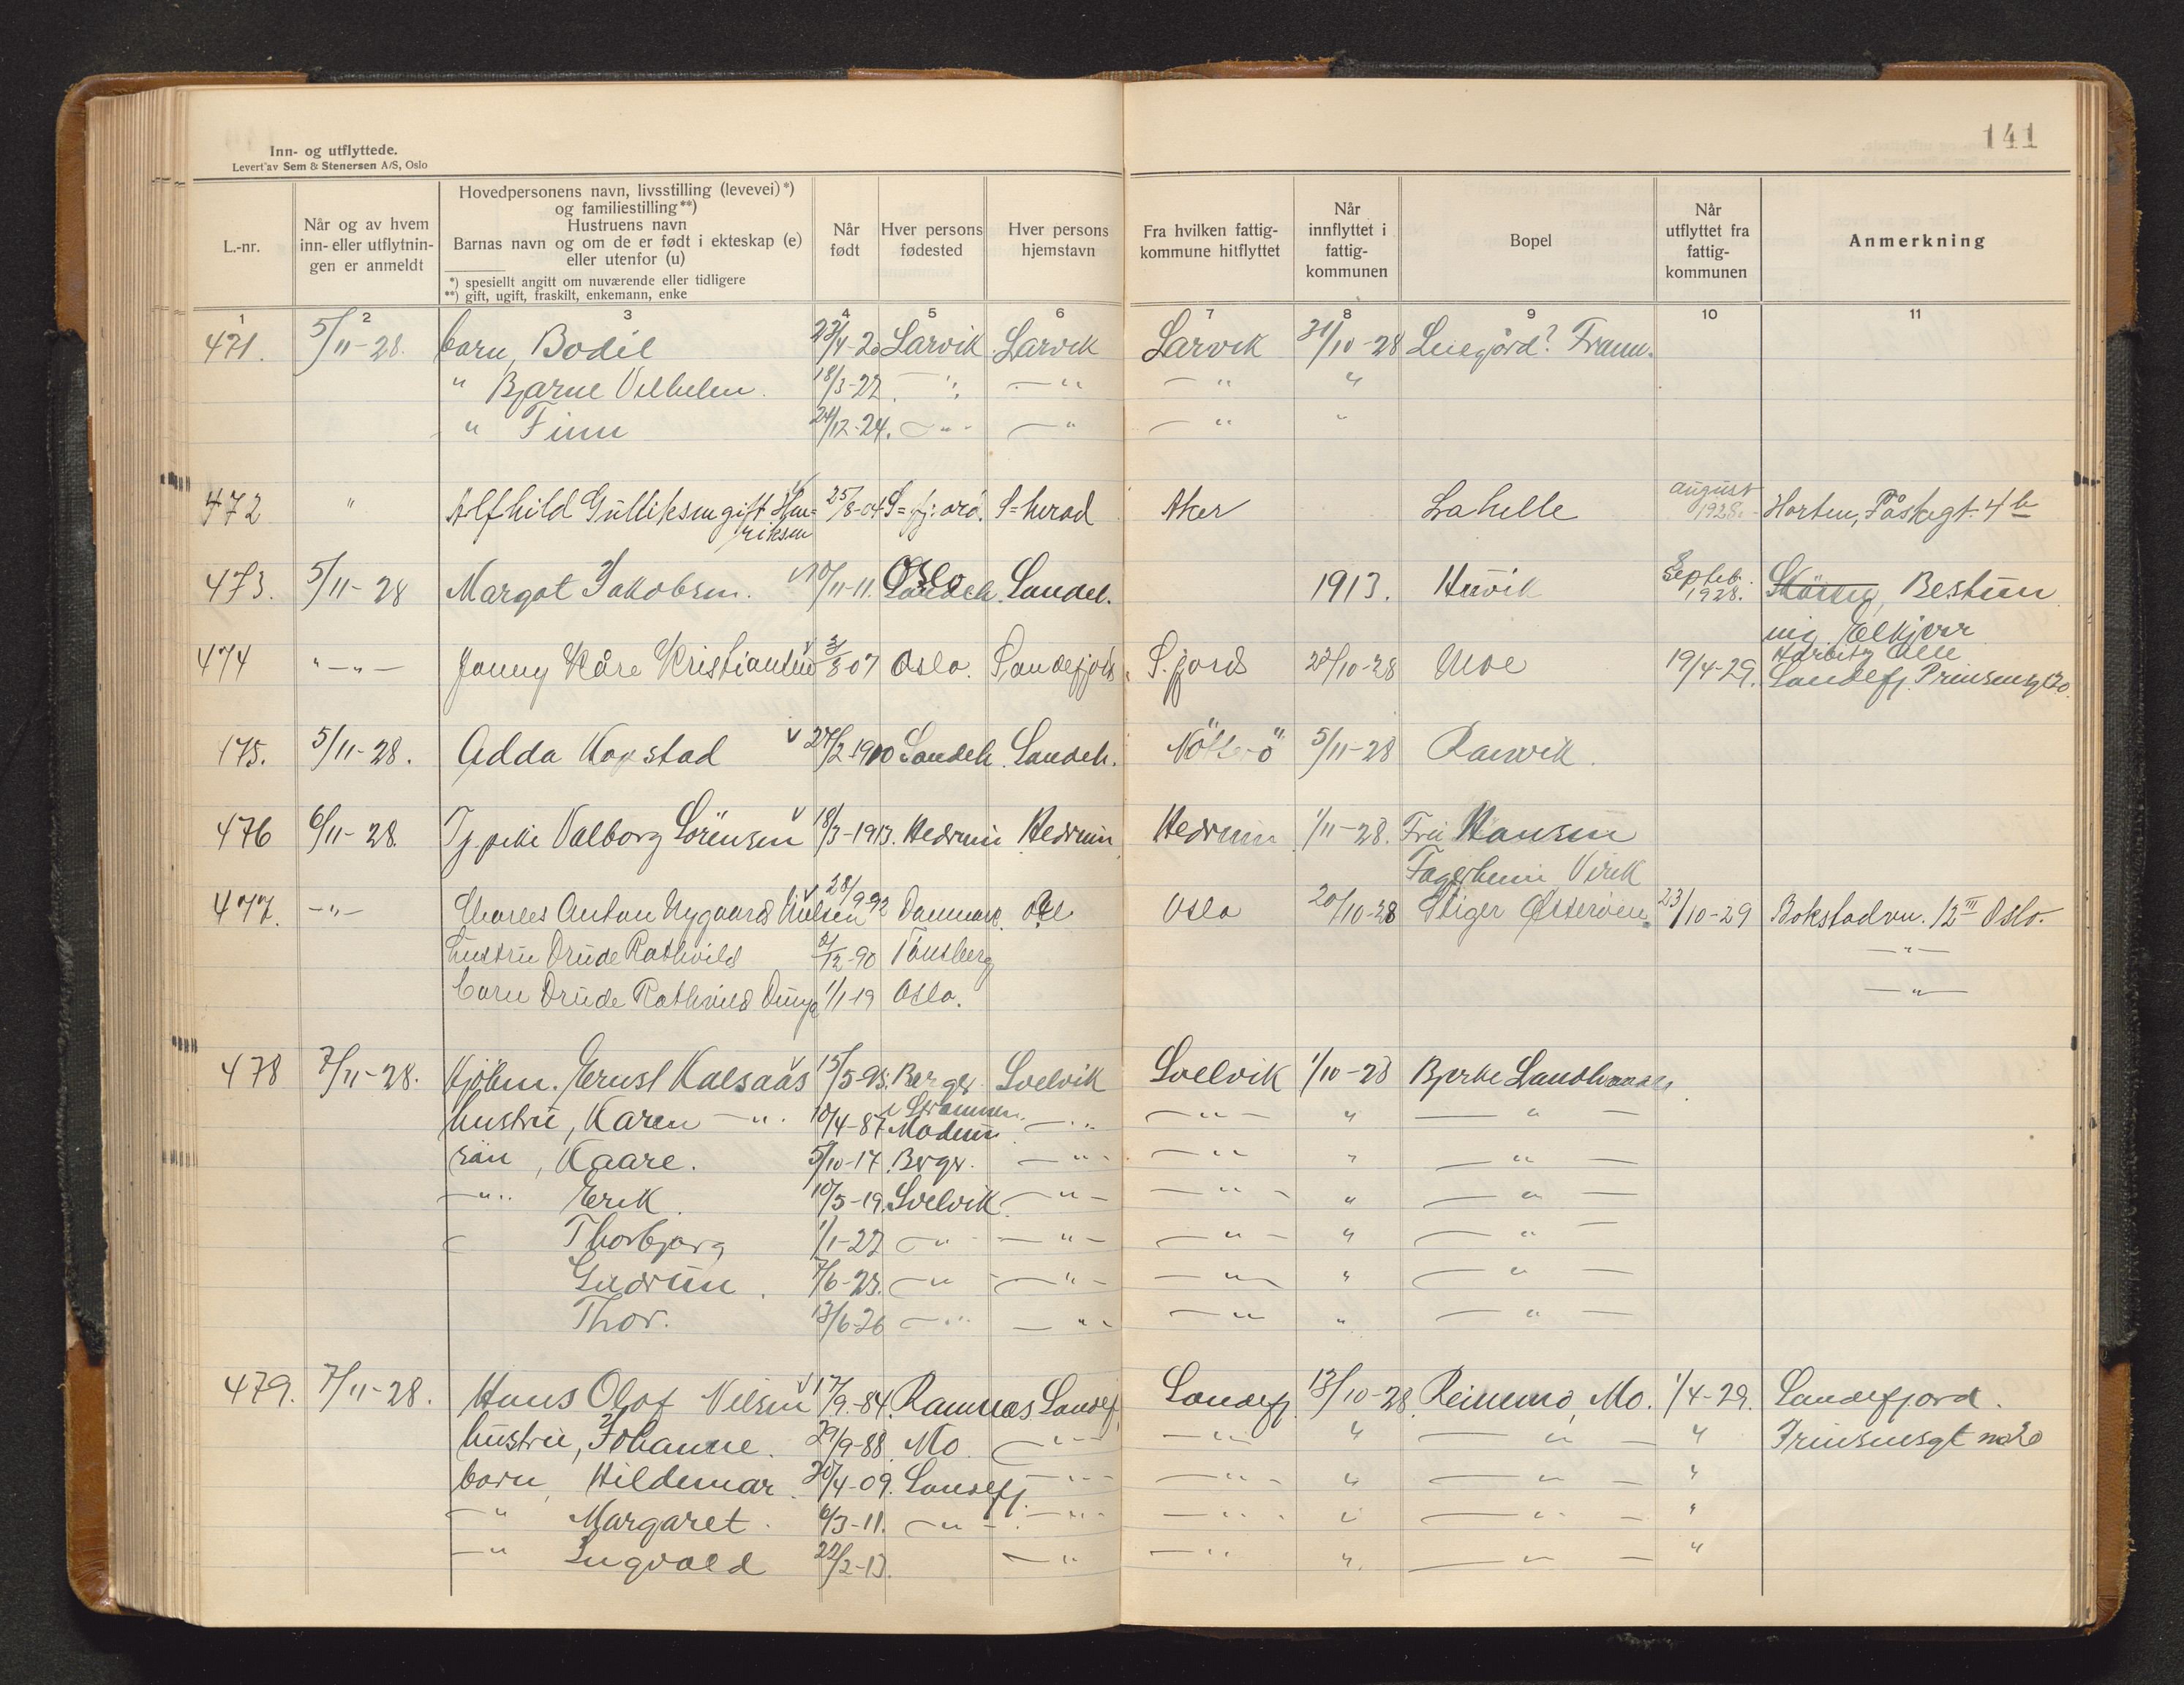 141
Inn- og utflyttede.
Levert av Sem & Stenersen A/S, Oslo
L.-nr.
Når og av hvem inn- eller utflytnin-gen er anmeldt
Hovedpersonens navn, livsstilling (levevei)*)
og familiestilling**)
Hustruens navn
Barnas navn og om de er født i ekteskap (e)
eller utenfor (u)
*) spesiellt angitt om nuværende eller tidligere
**) gift, ugift, fraskilt, enkemann, enke
Når født
Hver persons fødested
Hver persons hjemstavn
Fra hvilken fattig-kommune hitflyttet
Når innflyttet i fattig-kommunen
Bopel
Når utflyttet fra fattig-kommunen
Anmerkning
1 2 3 4 5 6 7 8 9 10 11
471. 5/11-28. barn, Bodil Larvik Larvik Larvik 31/10-28
" Bjarne Vilhelm. 18/3-22 " " " "
" Finn 24/12-24. " " " "
472 " Alfhild Gulliksen gift Hen= 25/8-04 S=fj:ord. S=herad Aker Lahelle august
riksen 1928. Horten, Fåskegt. 4b
473. 5/11-28 Margot Jakobsen. 10/11-11. Oslo Sandeh. 1913. Huvik Septeb.
1928. Bestun
474 "-"- Jonny Kåre Kristiansen 07 Oslo. Sandefjord S.fjord 22/10-28 Moe 19/4-29. Sandefj. Prinsensgt 20.
475. 5/11-28. Adda Kopstad 27/2-1900 Sandeh. Sandeh. Nötterö 5/11-28
476 6/11-28. Tj.pike Valborg Sörensen 18/3-1913. Hedrum Hedrum Hedrum 1/11-28. Fru Hansen
Fagerheim Virik
477. -"- Charles Anton Nygaard Nilsen 28/9 92 Danmark Oslo 20/10-28 Stiger Østerøien 23/10-29 12 III Oslo.
hustru Drude Rathvild 90 Tønsberg -"-
barn Drude Rathvild 1/1-19 Oslo. -"-
478 7/11-28. Kjöbm. Ernst Kalsaas 15/5-95. Berger Svelvik Svelvik 1/10-28 Bjerke Landhandel
i Strømmen.
hustru, Karen -"- 10/4-87 Modum -"- -"- " -"-
sön, Kaare. 5/10-17. Berger. -"- -"- " -"-
-"- Erik. 10/5-19. Svelvik -"- -"- " -"-
- Thorbjørg 1/1-22 -"- -"- -"- " -"-
Gudrun. 7/6-23. -"- -"- -"- " -"-
Thor. 13/6-26 -"- -"- -"- " -"-
479. 7/11-28. Hans Olaf Nilsen 17/9-84. Ramnes Sandefj. Sandefj. 13/10-28. Reinemo, Mo. 1/4-29. Sandefjord.
hustru, Johanne. 29/9-88. Mo -"- -"- " -"- " Prinsensgt no 20
barn, Hildemar. 20/4-09. Sandefj. -"- -"- " -"- "
-"- Margaret. 6/3-11. -"- -"- -"- " -"- "
-"- Ingvald 22/2-13. -"- -"- " -"- "